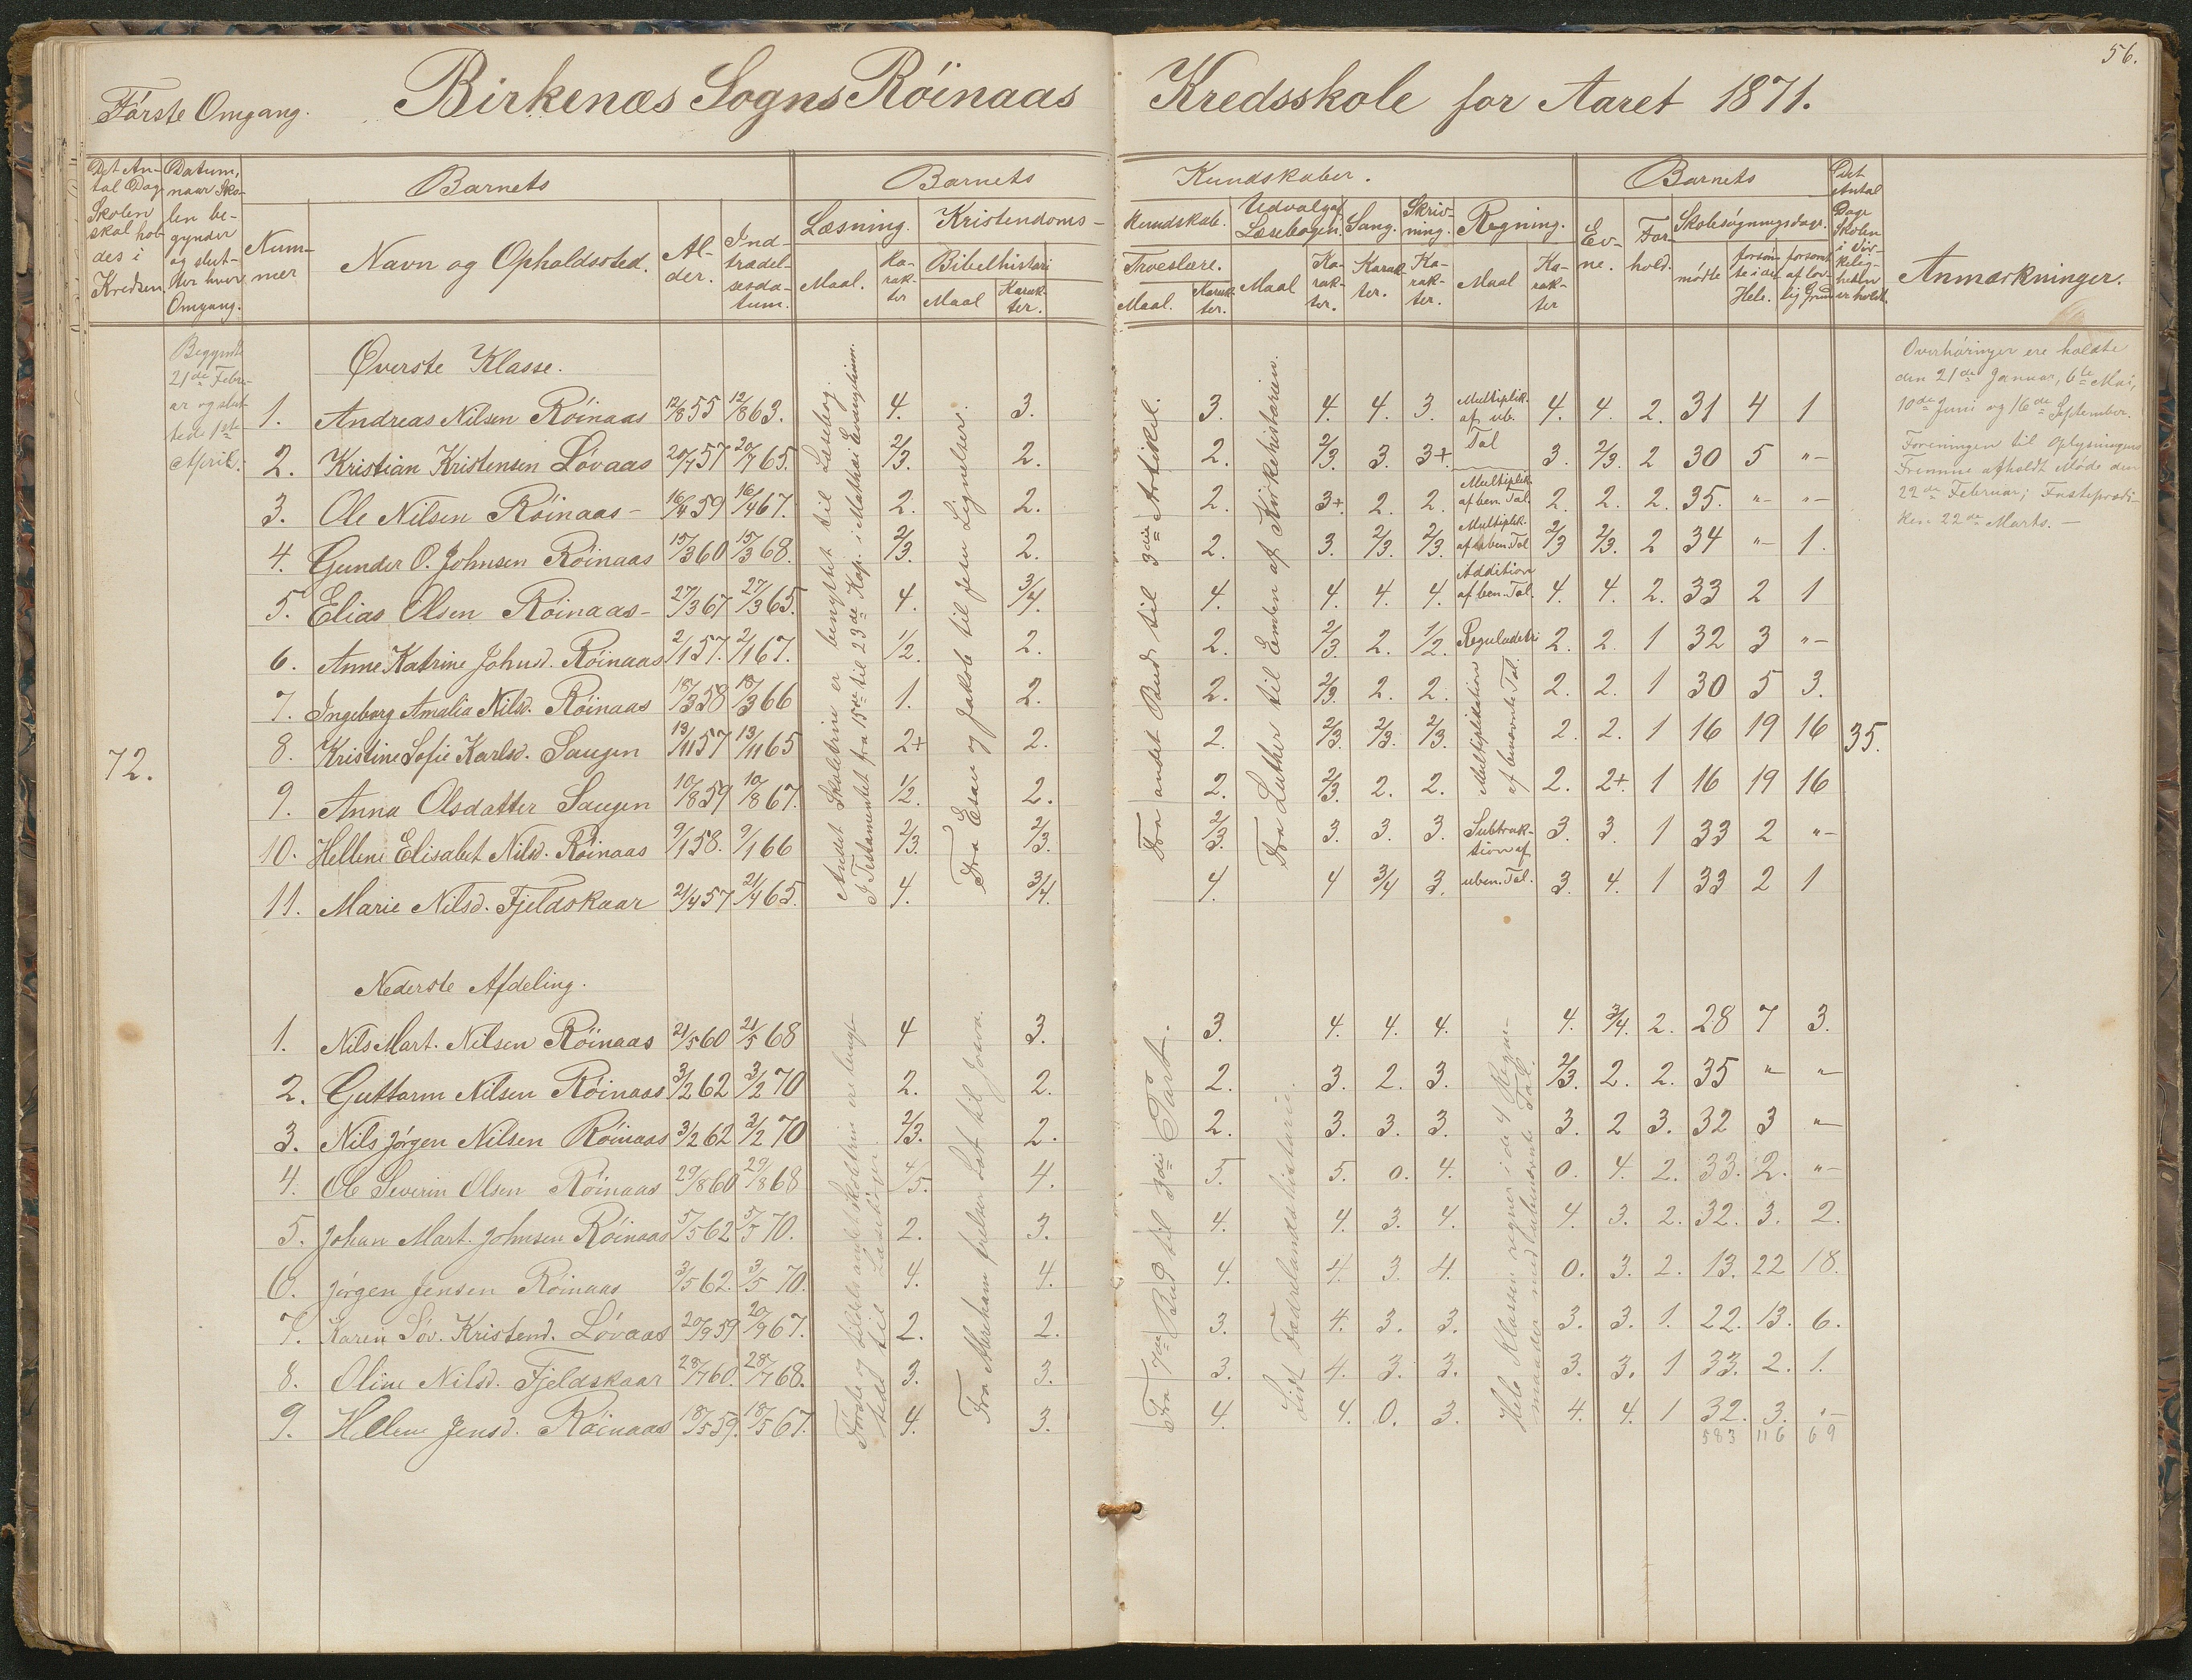 56.
Förste Omgang. Birkenæs Sogns Röinaas Kredsskole for Aaret 1871.
Det Antal Dage Skolen skal holdes i Kredsen.
Datum, naar Skolen begynder og slutter hver Omgang.
Barnets
Nummer
Navn og Opholdssted.
Alder.
Indtrædelsesdatum.
Barnets Kundskaber.
Læsning. Kristendomskundskab. Udvalg af Læsebogen. Sang. Skrivning. Regning.
Maal. Karakter
Bibelhistorie Troeslære.
Maal Karakter. Maal. Karakter. Maal Karakter. Karakter. Karakter. Maal Karakter
Barnets
Evne. Forhold. Skolesøgningsdage.
mödte forsømte i det Hele. forsømt af lovlig Grund
Det Antal Dage Skolen i Virkeligheden er holdt.
Anmærkninger.
72.
Begyndte
21de Febru-
ar og slut-
tede 1ste
April.
Øverste Klasse.
1. Andreas Nilsen Röinaas 12/8 55 12/8 63. 4. 3. 3. 4. 4. 3. Multiplik. af ub. Tal 4. 4. 2. 31 4 1
2. Kristian Kristensen Lövaas 20/7 57 20/7 65. 2/3. 2. 2. 2/3. 3. 3+. 3. 2/3. 2 30 5 "-
3. Ole Nilsen Röinaas - 16/4 59 16/4 67. 2. 2. 2. 3+. 2. 2. Multiplik. af ben. Tal. 2. 2. 2. 35. "- "-
4. Gunder O. Johnsen Röinaas 15/3 60 15/3 68. 2/3. 2. 2. 3. 2/3. 2/3. Multiplik. af uben. Tal 2/3 2/3. 2 34 "- 1.
5. Elias Olsen Röinaas - 27/3 67 27/3 65. 4. 3/4. 4. 4. 4. 4. Addition af ben. Tal. 4. 4. 2. 33 2 1
6. Anne Katrine Johnsd. Röinaas 2/1 57. 2/1 67. 1/2. 2. 2. 2/3. 2. 1/2. Reguladetri 2. 2. 1 32 3 "-
7. Ingeborg Amalia Nilsd. Röinaas 18/3 58 18/3 66 1. 2. 2. 2/3. 2. 2. Multiplikation af benævnte Tal. 2. 2. 1 30 5 3.
8. Kristine Sofie Karlsd. Saugen 13/11 57 13/11 65 2+ 2. 2. 2/3. 2/3. 2/3. 2. 2. 1 16 19 16 35.
9. Anna Olsdatter Saugen 10/8 59 10/8 67. 1/2. 2. 2. 2/3. 2. 2. 2. 2+. 1 16 19 16
10. Hellene Elisabet Nilsd. Röinaas 9/1 58. 9/1 66 2/3. 2/3. 2/3. 3. 3. 3. Subtraktion af uben. Tal. 3. 3. 1 33 2 "-
11. Marie Nilsd. Fjeldskaar 21/4 57 21/4 65. 4. 3/4. 4. 4 3/4 3. 3. 4. 1 33 2 1
Andet Skoletrin er benyttet til Læsebog.
I Testamentet fra 15de til 23de Kap. i Mathæi Evangelium.
Fra Esau og Jakob til Jesu Lignelser.
Fra andet Bud til 3die Artikel.
Fra Luther til Enden af Kirkehistorien.
Overhöringer ere holdte
den 21de Januar, 6te Mai,
10de Juni og 16de September.
Foreningen til Oplysningens
Fremme afholdt Möde den
22de Februar; Fasteprædi-
ken 22de Marts. -
Nederste Afdeling.
1. Nils Mart. Nilsen Röinaas 21/5 60 21/5 68 4 3. 3. 4. 4. 4. 4. 3/4. 2. 28 7 3.
2. Guttorm Nilsen Röinaas 3/2 62 3/2 70 2. 2. 2. 3. 2. 3. 2/3. 2. 2. 35 " "
3. Nils Jörgen Nilsen Röinaas 3/2 62 3/2 70 2/3. 2. 2. 3. 3. 3. 3. 2 3. 32 3 "-
4. Ole Severin Olsen Röinaas 29/8 60 29/8 68 4/5. 4. 5. 5. 0. 4. 0. 4. 2. 33. 2. "-
5. Johan Mart. Johnsen Röinaas 5/5 62 5/5 70. 2. 3. 4. 4. 3. 4. 4. 3. 2. 32. 3. 2.
6. Jörgen Jensen Röinaas 3/5 62. 3/5 70. 4. 4. 4. 4. 3. 4. 0. 3. 2. 13. 22 18.
7. Karen Sov. Kristend. Lövaas 20/9 59 20/9 67. 2. 2. 3. 4. 3. 3. 3. 3. 1. 22. 13. 6.
8. Oline Nilsd. Fjeldskaar 28/7 60. 28/7 68. 3. 3. 3. 4. 3. 3. 3. 3. 1 33. 2. 1.
9. Hellene Jensd. Röinaas 18/5 59. 18/5 67. 4. 3. 4. 4. 0. 3. 4. 4. 1 32. 3. "-
583 116 69
Første og tildels andet Skoletrin er benyttet til Læsebog
Fra Abraham frelser Lot til Josva.
Fra 7de Bud til 3die Part.
Lidt Fædrelandshistorie
Hele Klassen regner i de 4 Regnemaader med ubenævnte Tal.